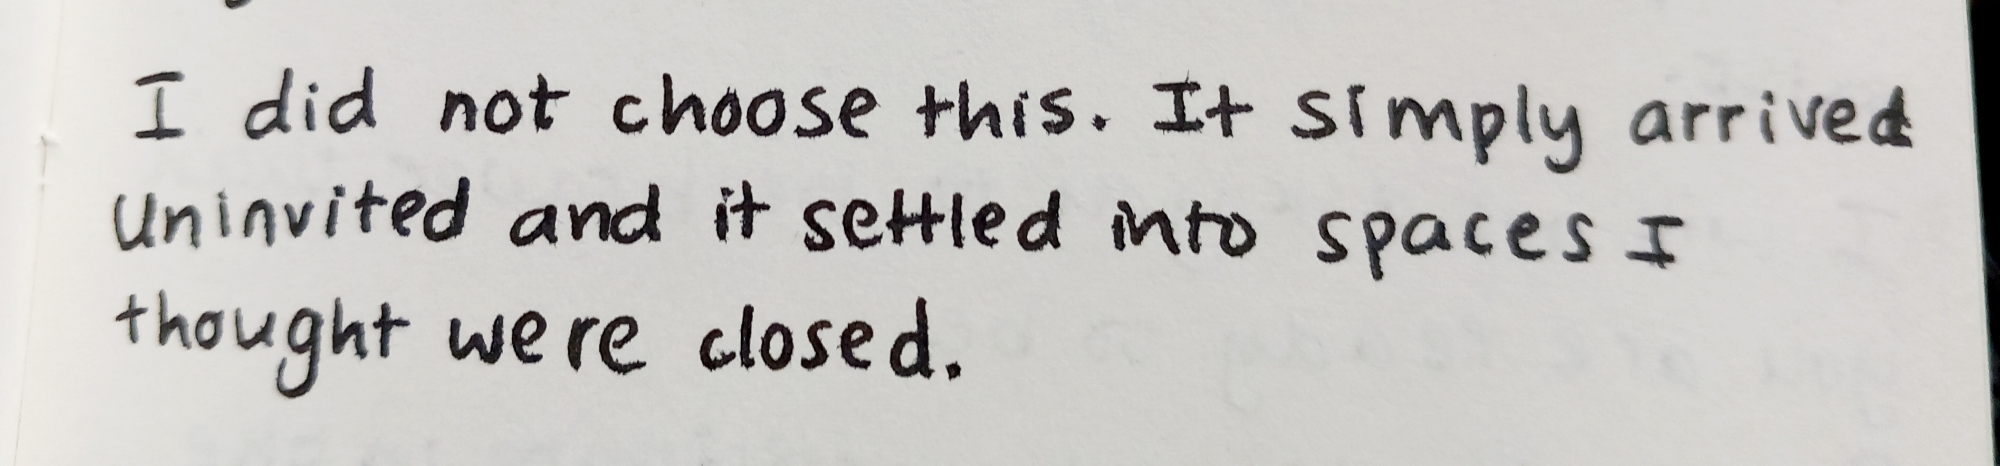 I did not choose this. It simply arrived
uninvited and it settled into spaces I
thought were closed.